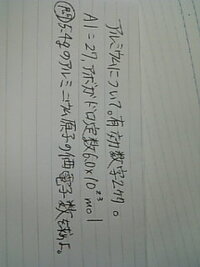 アルミニウムについて。有効数字2ケタ。
Al=27,アボガドロ定数6.0×10²³mol
問5.4gのアルミニウム原子の価電子数を求めよ。